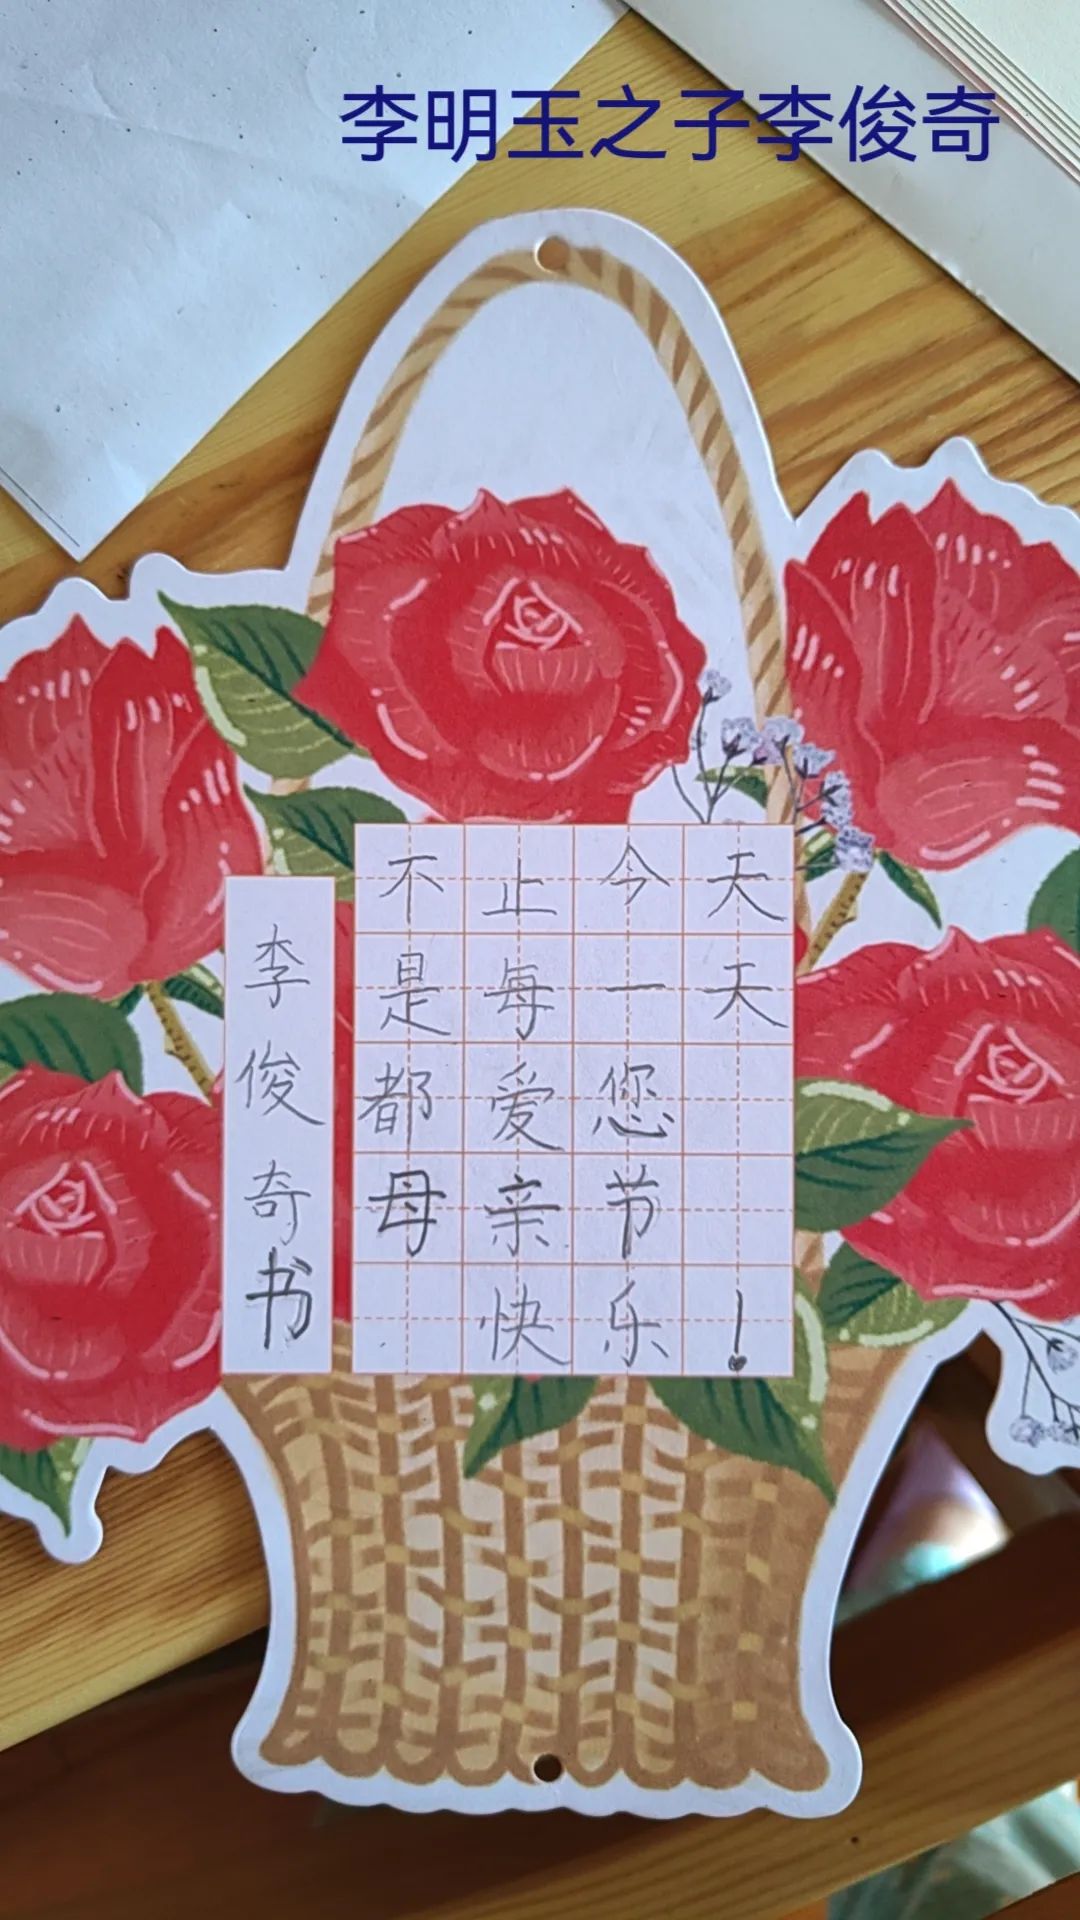 李明玉之子李俊奇
不止今天
是每一天
都爱您
母亲节
快乐!
李俊奇书